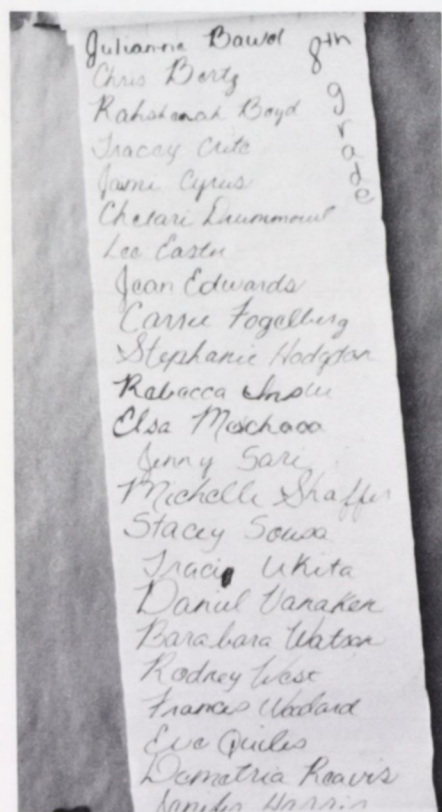 Julianne Bawol
8th grade
Chris Bertz
Rahshenah Boyd
Tracey Crite
Jami Cyrus
Chelari Drummond
Lee Easter
Jean Edwards
Carrie Fogelberg
Stephanie Hodgdon
Rabacca
Elsa
Jenny Sari
Michelle Shaffer
Stacey Sousa
Traci Ukita
Daniel Vanaken
Barabara Watson
Rodney West
Frances Woodard
Eve Quiles
Damatria Reavis
Jenifer Harris